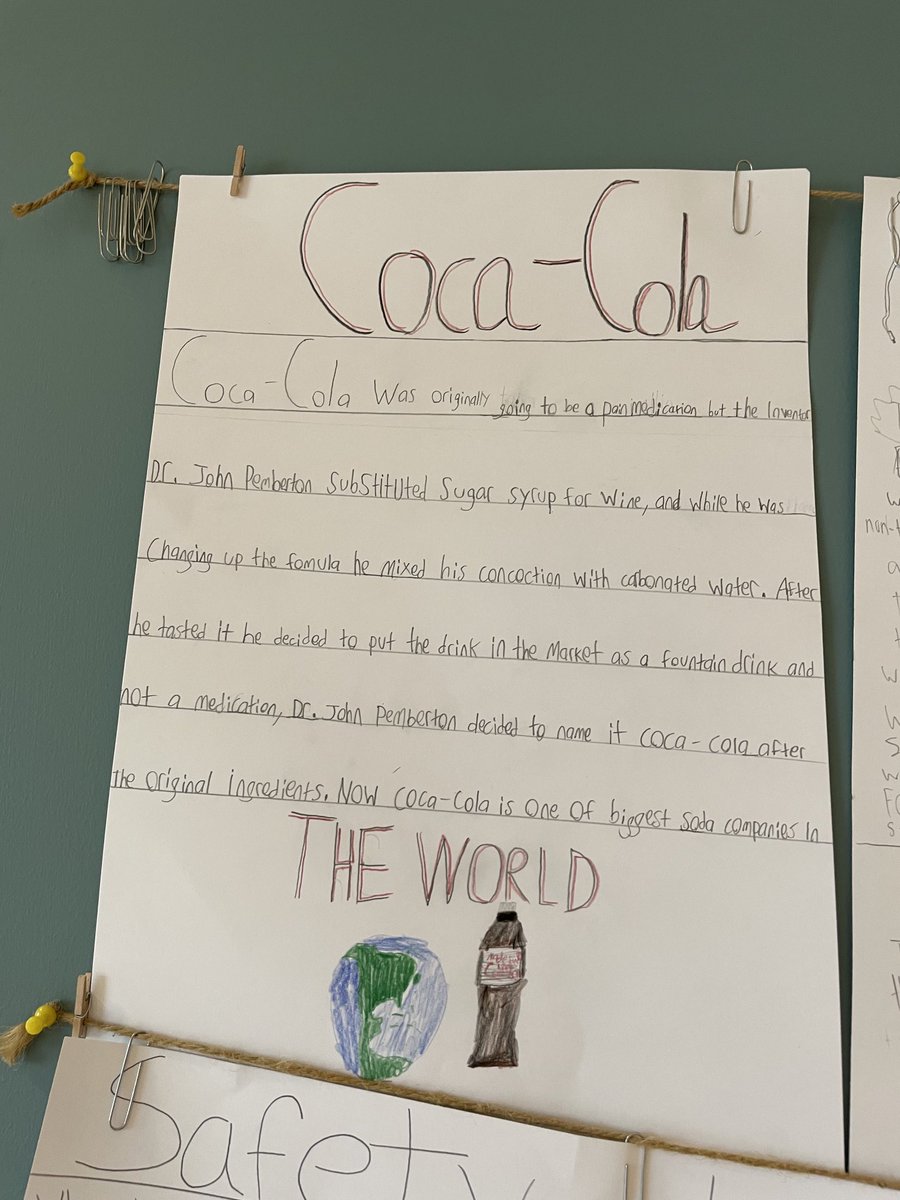 Coca-Cola
Coca-Cola Was originally going to be a pan medicarion but the Inventor
Dr. John Pemberton Substituted Sugar syrup for Wine, and while he was
Changing up the fomula he mixed his concoction with carbonated water. After
he tasted it he decided to put the drink in the Market as a fountain drink and
not a medication, Dr. John Pemberton decided to name it coca-cola after
the original ingredients. Now coca-cola is one of biggest soda companies in
THE WORLD
Safety